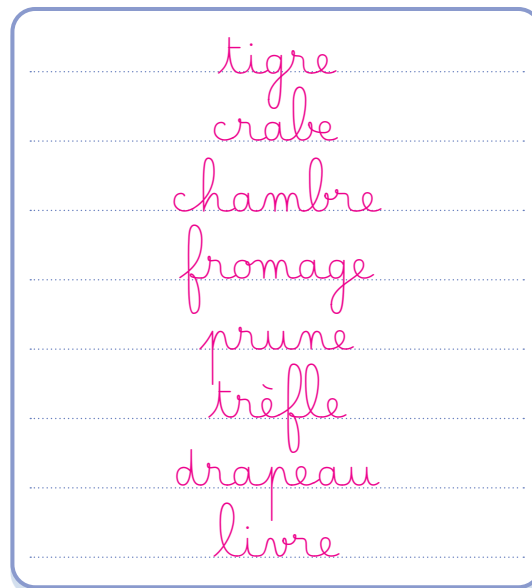 tigre
crabe
chambre
fromage
prune
trèfle
drapeau
livre